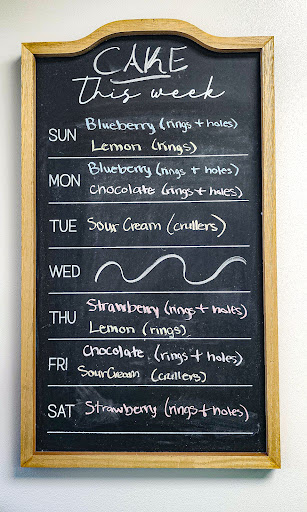 CAKE
this week
SUN Blueberry (rings + holes)
Lemon (rings)
MON Blueberry (rings + holes)
chocolate (rings + holes)
TUE Sour Cream (crullers)
WED
THU Strawberry (rings + holes)
Lemon (rings)
FRI Chocolate (rings + holes)
Sour Cream (crullers)
SAT Strawberry (rings + holes)